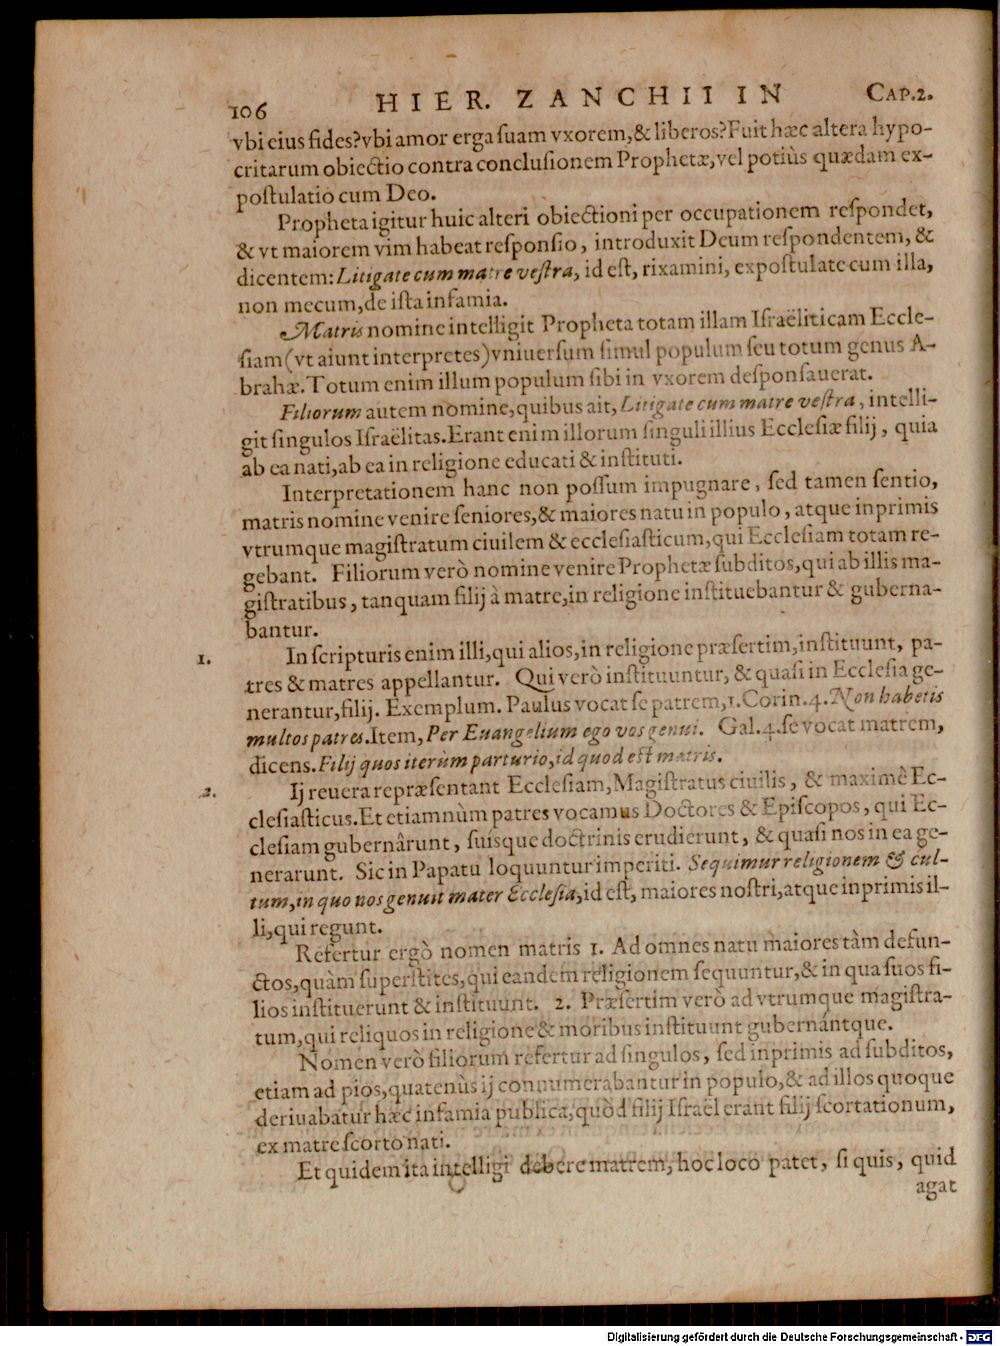 106 HIER. ZANCHII IN CAP.2.
vbi eius fides?vbi amor erga suam vxorem,& liberos?Fuit hæc altera hypo-
critarum obiectio contra conclusionem Prophetæ,vel potiùs quædam ex-
postulatio cum Deo.
Propheta igitur huic alteri obiectioni per occupationem respondet,
& vt maiorem vim habeat responsio, introduxit Deum respondentem, &
dicentem: Litigate cum matre vestra, id est, rixamini, expostulate cum illa,
non mecum,de ista infamia.
Matris nomine intelligit Propheta totam illam Israëliticam Eccle-
siam (vt aiunt interpretes) vniuersum simul populum seu totum genus A-
brahæ. Totum enim illum populum sibi in vxorem desponsauerat.
Filiorum autem nomine,quibus ait, Litigate cum matre vestra, intelli-
git singulos Israëlitas. Erant enim illorum singuli illius Ecclesiæ filij, quia
ab ea nati,ab ea in religione educati & instituti.
Interpretationem hanc non possum impugnare, sed tamen sentio,
matris nomine venire seniores,& maiores natu in populo, atque inprimis
vtrumque magistratum ciuilem & ecclesiasticum,qui Ecclesiam totam re-
gebant. Filiorum verò nomine venire Prophetæ subditos,qui ab illis ma-
gistratibus, tanquam filij à matre,in religione instituebantur & guberna-
bantur.
1. In scripturis enim illi,qui alios,in religione præsertim,instituunt, pa-
tres & matres appellantur. Qui verò instituuntur, & quasi in Ecclesia ge-
nerantur,filij. Exemplum. Paulus vocat se patrem,1.Corin.4. Non habetis
multos patres. Item, Per Euangelium ego vos genui. Gal.4.se vocat matrem,
dicens. Filij quos iterùm parturio,id quod est matris.
2. Ij reuera repræsentant Ecclesiam,Magistratus ciuilis, & maximè Ec-
clesiasticus.Et etiamnùm patres vocamus Doctores & Episcopos, qui Ec-
clesiam gubernârunt, suisque doctrinis erudierunt, & quasi nos in ea ge-
nerarunt. Sic in Papatu loquuntur imperiti. Sequimur religionem & cul-
tum,in quo nos genuit mater Ecclesia,id est, maiores nostri,atque inprimis il-
li,qui regunt.
Refertur ergò nomen matris 1. Ad omnes natu maiores tàm defun-
ctos,quàm superstites,qui eandem religionem sequuntur,& in qua suos fi-
lios instituerunt & instituunt. 2. Præsertim verò ad vtrumque magistra-
tum,qui reliquos in religione & moribus instituunt gubernántque.
Nomen verò filiorum refertur ad singulos, sed inprimis ad subditos,
etiam ad pios,quatenùs ij connumerabantur in populo,& ad illos quoque
deriuabatur hæc infamia publica,quòd filij Israël erant filij scortationum,
ex matre scorto nati.
Et quidem ita intelligi debere matrem, hoc loco patet, si quis, quid
agat
Digitalisierung gefördert durch die Deutsche Forschungsgemeinschaft - DFG